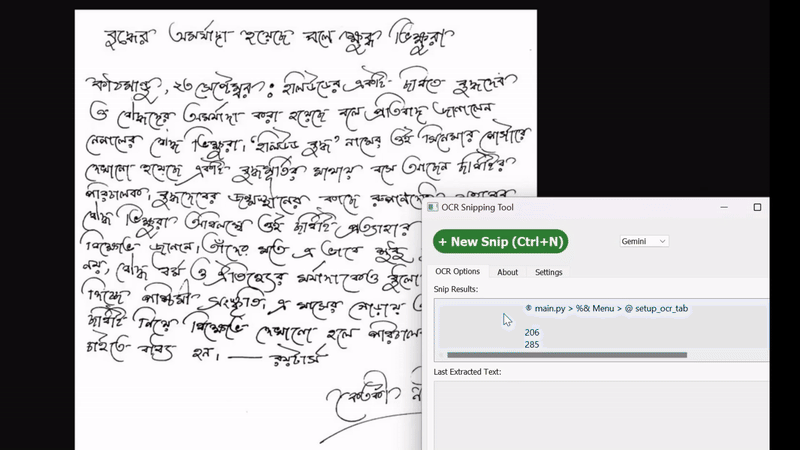 বুদ্ধের অমর্যাদা হয়েছে বলে ক্ষুব্ধ ভিক্ষুরা
কাঠমান্ডু, ২৩ সেপ্টেম্বর: হলিউডের একটি ছবিতে বুদ্ধদেব
ও বৌদ্ধদের অমর্যাদা করা হয়েছে বলে প্রতিবাদ জানালেন
নেপালের বৌদ্ধ ভিক্ষুরা। 'হলিউড বুদ্ধ' নামের ওই সিনেমার পোস্টারে
দেখানো হয়েছে একটি বুদ্ধমূর্তির মাথায় বসে আছেন ছবিটির
পরিচালক। বুদ্ধদেবের জন্মস্থানের কাছে
বৌদ্ধ ভিক্ষুরা অবিলম্বে ওই ছবিটি প্রত্যাহার
বিক্ষোভ জানান। তাঁদের মতে এ ভাবে শুধু
নয়, বৌদ্ধ ধর্ম ও ঐতিহ্যের মর্যাদাকেও
দিচ্ছে পশ্চিমী সংস্কৃতি। এ মাসের গোড়ায়
ছবিটি নিয়ে বিক্ষোভ দেখানো হলে
চাইতে বাধ্য হন। — রয়টার্স
OCR Snipping Tool
+ New Snip (Ctrl+N)
Gemini
OCR Options About Settings
Snip Results:
® main.py > %& Menu > @ setup_ocr_tab
206
285
Last Extracted Text: